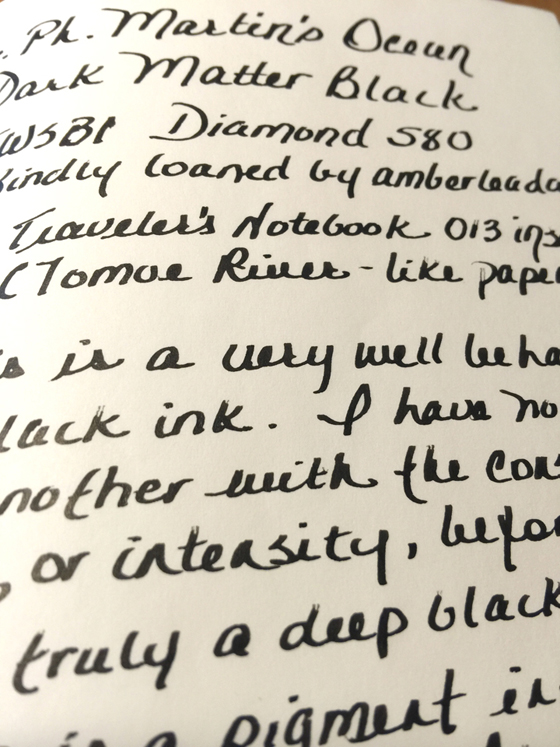 . Ph. Martin's Ocean
Dark Matter Black
WSBI Diamond 580
Kindly loaned by amberleada
Traveler's Notebook 013 ins
(Tomoe River-like paper
is is a very well beha
lack ink. I have no
nother with the cons
, or intensity, befor
truly a deep black
is a pigment in